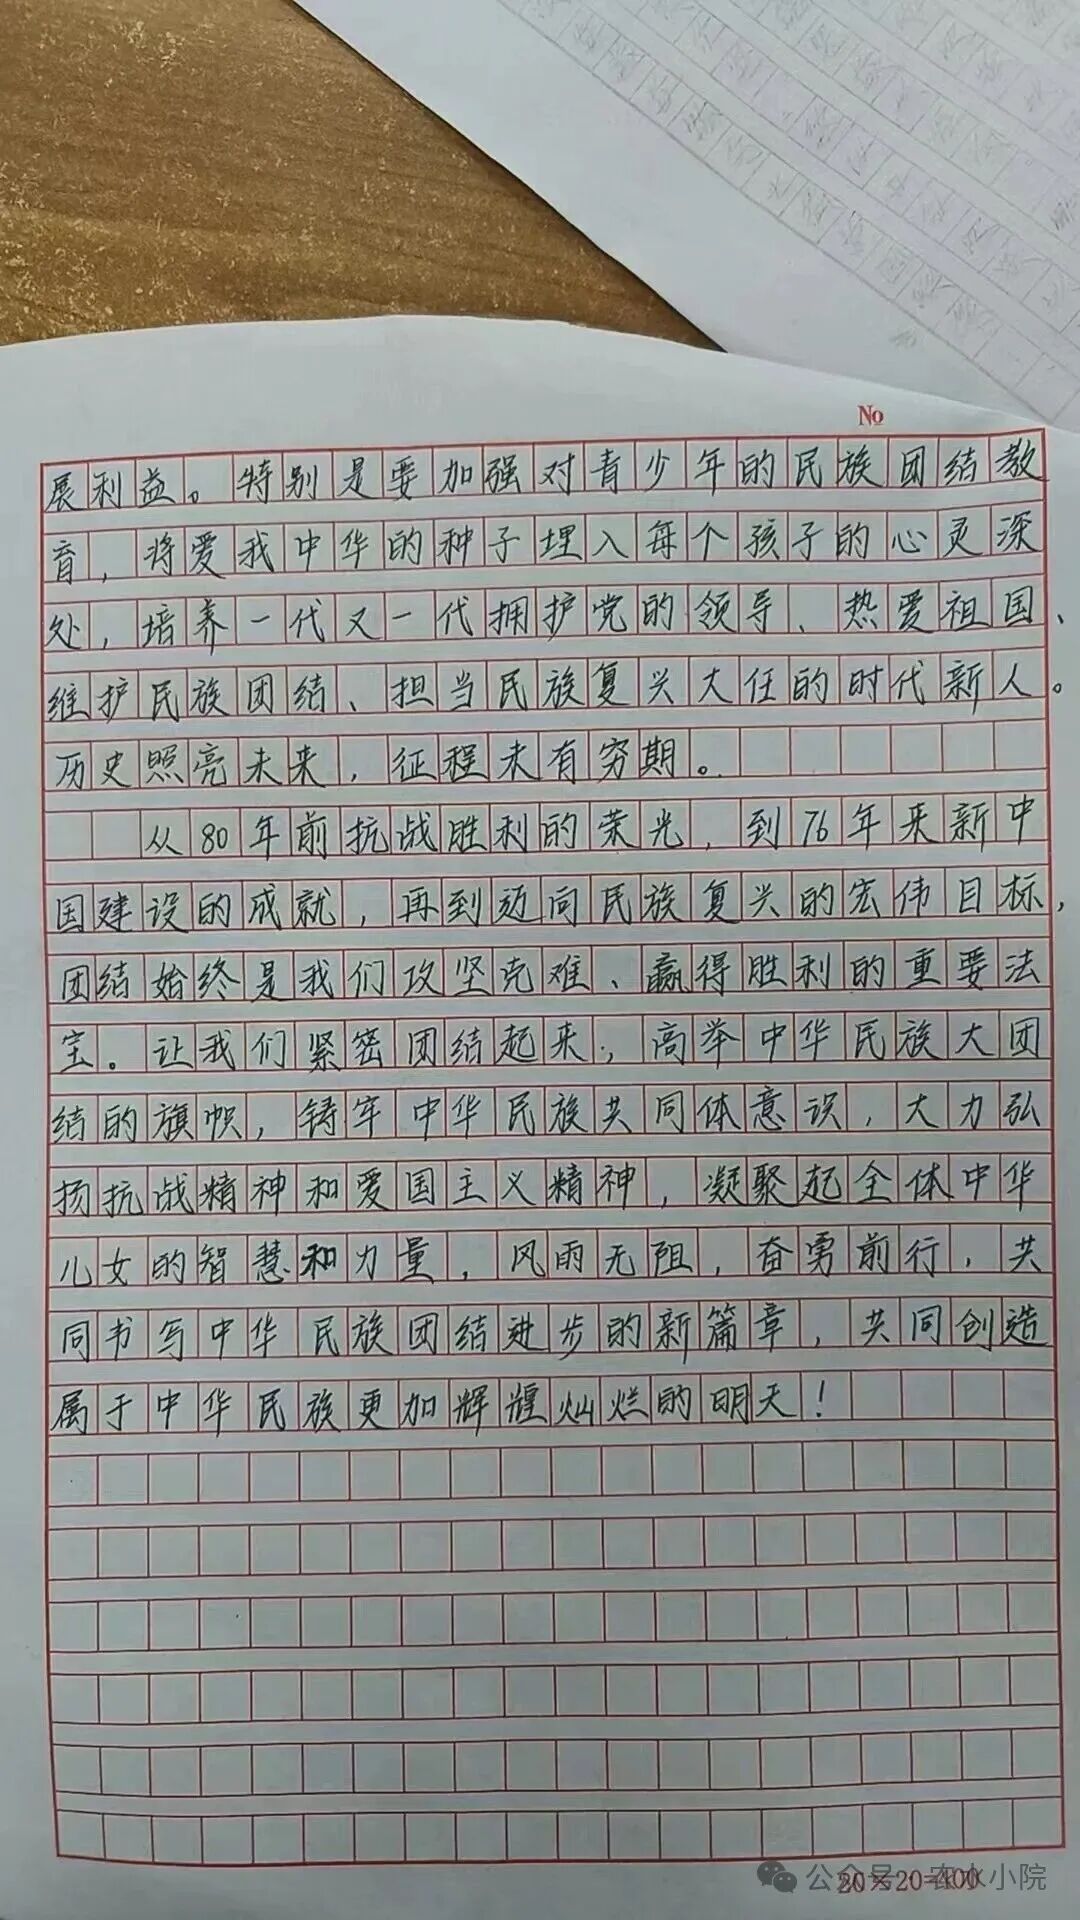 No
展利益。特别是要加强对青少年的民族团结教
育，将爱我中华的种子埋入每个孩子的心灵深
处，培养一代又一代拥护党的领导、热爱祖国、
维护民族团结、担当民族复兴大任的时代新人。
历史照亮未来，征程未有穷期。
从80年前抗战胜利的荣光，到76年来新中
国建设的成就，再到迈向民族复兴的宏伟目标，
团结始终是我们攻坚克难、赢得胜利的重要法
宝。让我们紧密团结起来，高举中华民族大团
结的旗帜，铸牢中华民族共同体意识，大力弘
扬抗战精神和爱国主义精神，凝聚起全体中华
儿女的智慧和力量，风雨无阻，奋勇前行，共
同书写中华民族团结进步的新篇章，共同创造
属于中华民族更加辉煌灿烂的明天！
20×20=400
公众号·农水小院